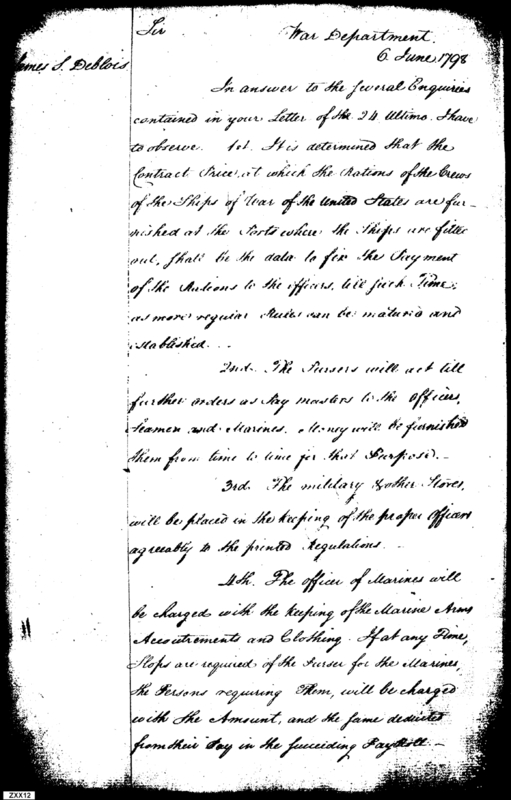 Sir
War Department
6 June 1798
James S. Deblois
In answer to the several Enquiries
contained in your Letter of the 24 Ultimo. I have
to observe. 1st. It is determined that the
Contract Price, at which the Rations of the Crews
of the Ships of War of the United States are fur-
nished at the Ports where the Ships are fitted
out, shall be the data to fix the Payment
of the Rations to the officers, till such Time,
as more regular Rules can be matured and
established...
2nd. The Pursers will act till
further orders as Pay masters to the officers,
Seamen and Marines. Money will be furnished
them from time to time for that Purpose. -
3rd. The military & other Stores,
will be placed in the keeping of the proper Officers
agreeably to the printed Regulations. -
4th. The officer of Marines will
be charged with the keeping of the Marine Arms
Accoutrements and Clothing. If at any Time,
Slops are required of the Purser for the Marines,
the Persons requiring Them, will be charged
with the Amount, and the same deducted
from their Pay in the succeeding Pay Roll -
ZXX12